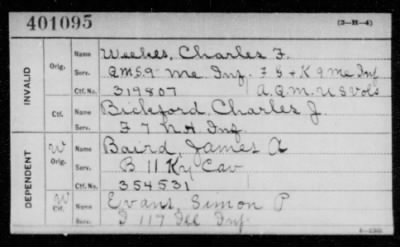 401095 (3-H-4)
INVALID
Orig. Name Weekes, Charles F.
Serv. QMS 9 Me Inf. F S & K 9 Me Inf
Ctf. No. 319807 A.Q.M. U S Vols
Ctf. Name Bickford, Charles J.
Serv. F 7 N H Inf
DEPENDENT
W Orig. Name Baird, James A
Serv. B 11 Ky Cav
Ctf. No. 354531
W Ctf. Name Evans, Simon P
Serv. I 117 Ill Inf.